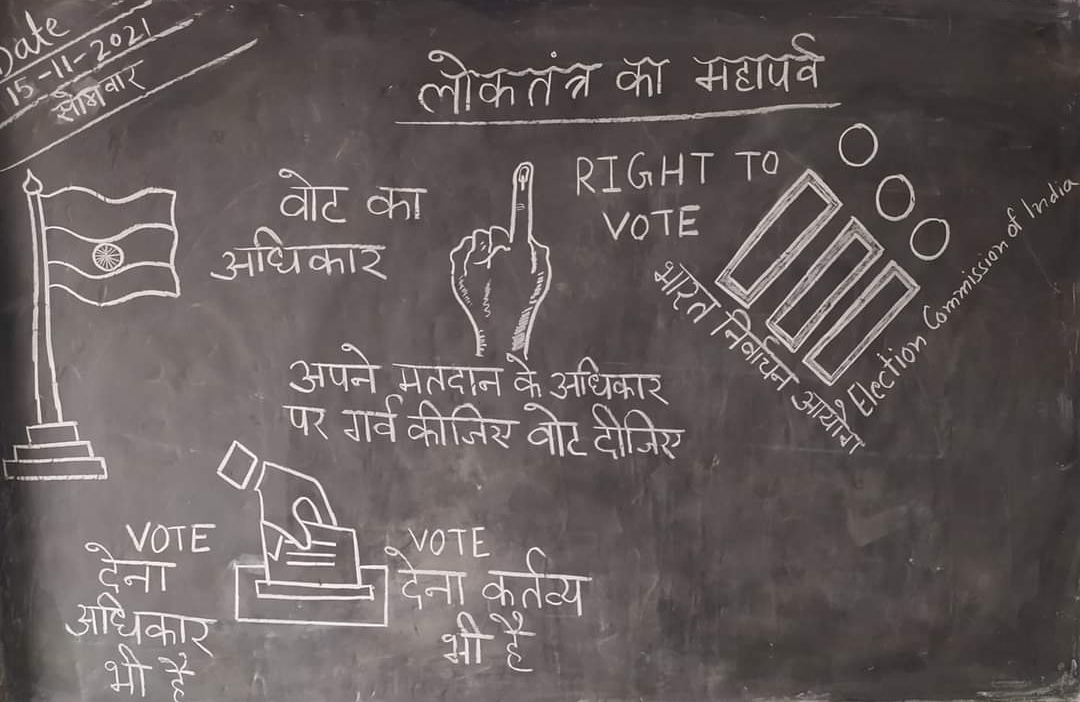 Date
15-11-2021
सोमवार
लोकतंत्र का महापर्व
वोट का
अधिकार
RIGHT TO
VOTE
भारत निर्वाचन आयोग
Election Commission of India
अपने मतदान के अधिकार
पर गर्व कीजिए वोट दीजिए
VOTE
देना
अधिकार
भी है
VOTE
देना कर्तव्य
भी है